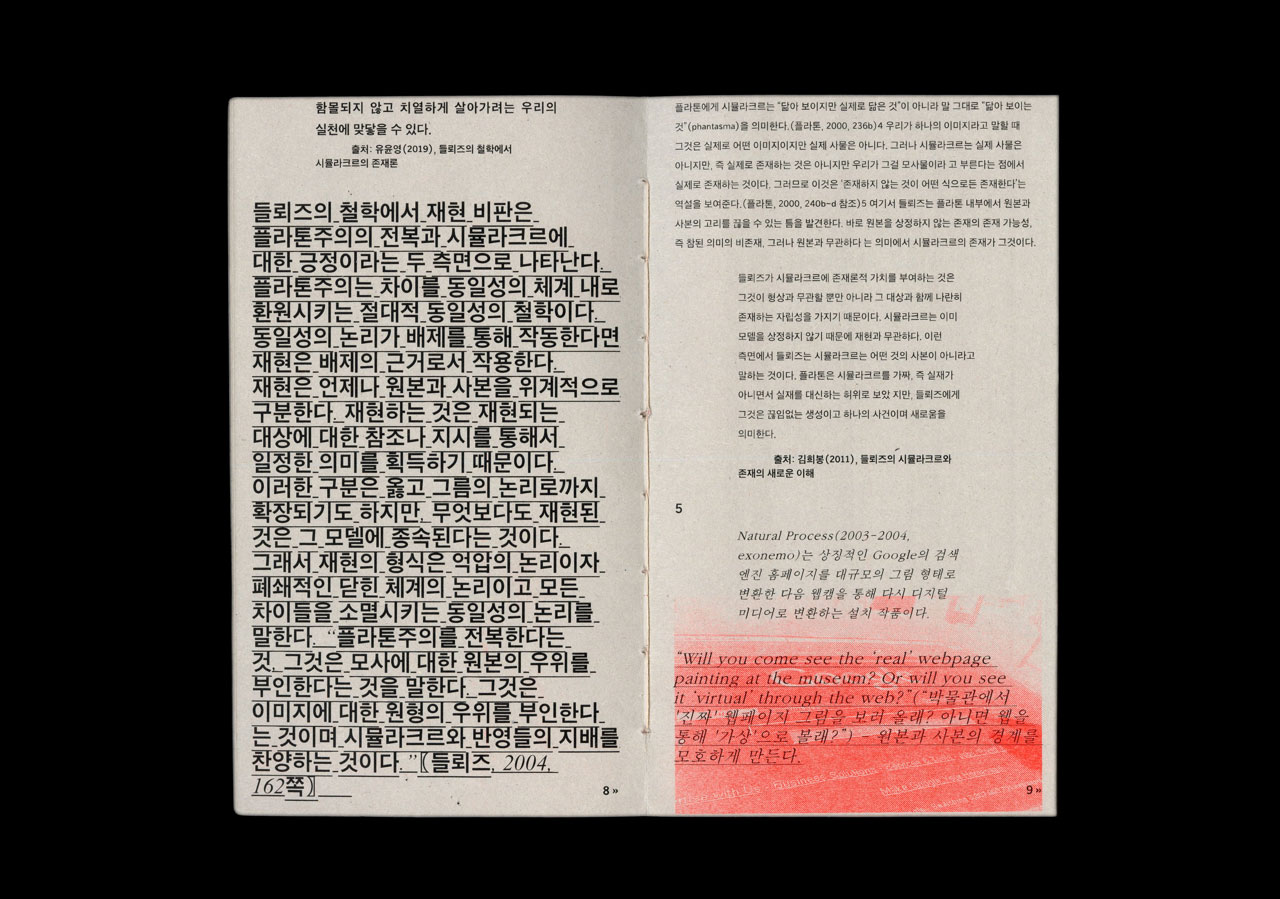 함몰되지 않고 치열하게 살아가려는 우리의
실천에 맞닿을 수 있다.
출처: 유윤영(2019), 들뢰즈의 철학에서
시뮬라크르의 존재론
들뢰즈의 철학에서 재현 비판은
플라톤주의의 전복과 시뮬라크르에
대한 긍정이라는 두 측면으로 나타난다.
플라톤주의는 차이를 동일성의 체계 내로
환원시키는 절대적 동일성의 철학이다.
동일성의 논리가 배제를 통해 작동한다면
재현은 배제의 근거로서 작용한다.
재현은 언제나 원본과 사본을 위계적으로
구분한다. 재현하는 것은 재현되는
대상에 대한 참조나 지시를 통해서
일정한 의미를 획득하기 때문이다.
이러한 구분은 옳고 그름의 논리로까지
확장되기도 하지만, 무엇보다도 재현된
것은 그 모델에 종속된다는 것이다.
그래서 재현의 형식은 억압의 논리이자
폐쇄적인 닫힌 체계의 논리이고 모든
차이들을 소멸시키는 동일성의 논리를
말한다. “플라톤주의를 전복한다는
것, 그것은 모사에 대한 원본의 우위를
부인한다는 것을 말한다. 그것은
이미지에 대한 원형의 우위를 부인한다
는 것이며 시뮬라크르와 반영들의 지배를
찬양하는 것이다.”〖들뢰즈, 2004,
162쪽〗
8 »
플라톤에게 시뮬라크르는 “닮아 보이지만 실제로 닮은 것”이 아니라 말 그대로 “닮아 보이는
것”(phantasma)을 의미한다.(플라톤, 2000, 236b)4 우리가 하나의 이미지라고 말할 때
그것은 실제로 어떤 이미지이지만 실제 사물은 아니다. 그러나 시뮬라크르는 실제 사물은
아니지만, 즉 실제로 존재하는 것은 아니지만 우리가 그걸 모사물이라 고 부른다는 점에서
실제로 존재하는 것이다. 그러므로 이것은 ‘존재하지 않는 것이 어떤 식으로든 존재한다’는
역설을 보여준다.(플라톤, 2000, 240b–d 참조)5 여기서 들뢰즈는 플라톤 내부에서 원본과
사본의 고리를 끊을 수 있는 틈을 발견한다. 바로 원본을 상정하지 않는 존재의 존재 가능성,
즉 참된 의미의 비존재, 그러나 원본과 무관하다 는 의미에서 시뮬라크르의 존재가 그것이다.
들뢰즈가 시뮬라크르에 존재론적 가치를 부여하는 것은
그것이 형상과 무관할 뿐만 아니라 그 대상과 함께 나란히
존재하는 자립성을 가지기 때문이다. 시뮬라크르는 이미
모델을 상정하지 않기 때문에 재현과 무관하다. 이런
측면에서 들뢰즈는 시뮬라크르는 어떤 것의 사본이 아니라고
말하는 것이다. 플라톤은 시뮬라크르를 가짜, 즉 실재가
아니면서 실재를 대신하는 허위로 보았 지만, 들뢰즈에게
그것은 끊임없는 생성이고 하나의 사건이며 새로움을
의미한다.
출처: 김희봉(2011), 들뢰즈의 시뮬라크르와
존재의 새로운 이해
5
Natural Process(2003–2004,
exonemo)는 상징적인 Google의 검색
엔진 홈페이지를 대규모의 그림 형태로
변환한 다음 웹캠을 통해 다시 디지털
미디어로 변환하는 설치 작품이다.
“Will you come see the ‘real’ webpage
painting at the museum? Or will you see
it ‘virtual’ through the web?”(“박물관에서
'진짜' 웹페이지 그림을 보러 올래? 아니면 웹을
통해 '가상'으로 볼래?”) – 원본과 사본의 경계를
모호하게 만든다.
with Us Business Solutions
9 »